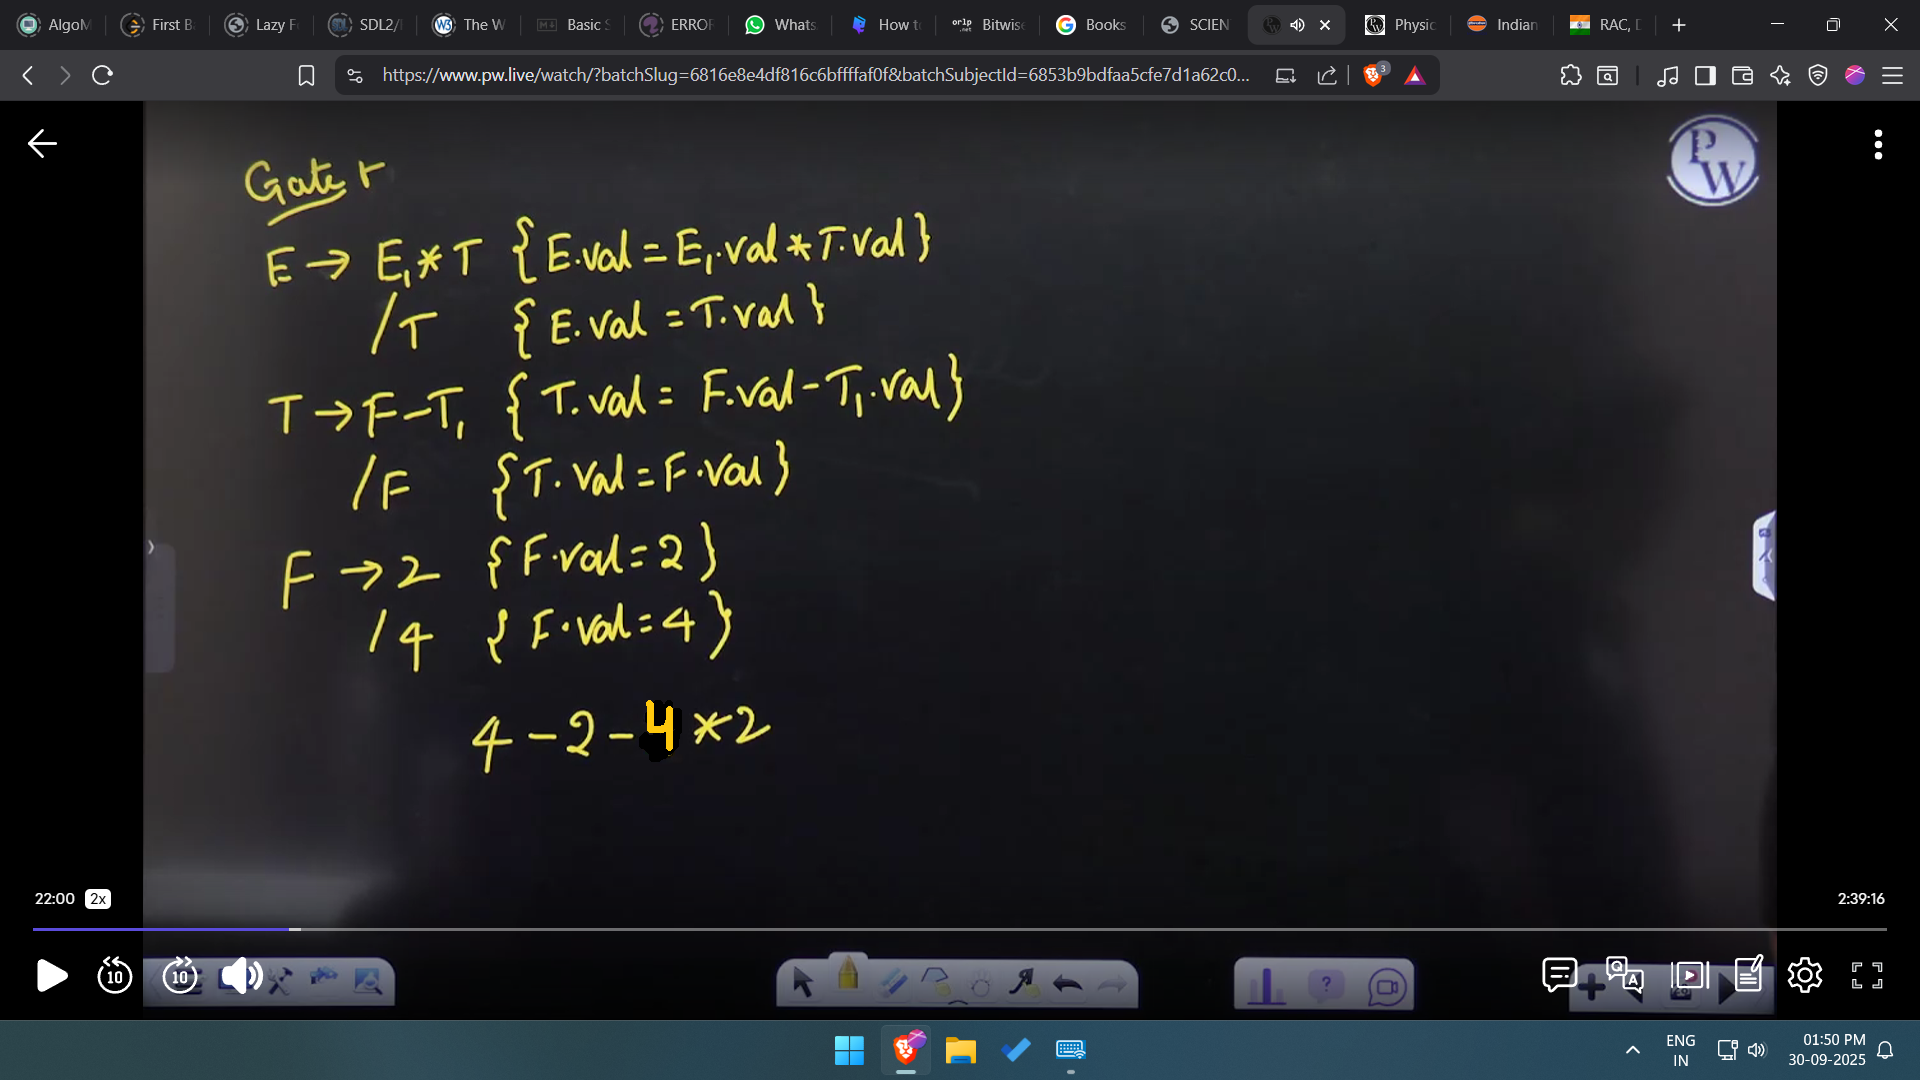 AlgoM
First B
Lazy F
SDL2/
The W
Basic S
ERROR
Whats
How t
Bitwise
Books
SCIEN
Physic
Indian
RAC, D
https://www.pw.live/watch/?batchSlug=6816e8e4df816c6bffffaf0f&batchSubjectId=6853b9bdfaa5cfe7d1a62c0...
3
PW
Gate
E → E₁ * T {E.val = E₁.val * T.val}
/T {E.val = T.val}
T → F - T₁ {T.val = F.val - T₁.val}
/F {T.val = F.val}
F → 2 {F.val = 2}
/4 {F.val = 4}
4 - 2 - 4 * 2
22:00 2x
2:39:16
10 10
ENG
IN
01:50 PM
30-09-2025